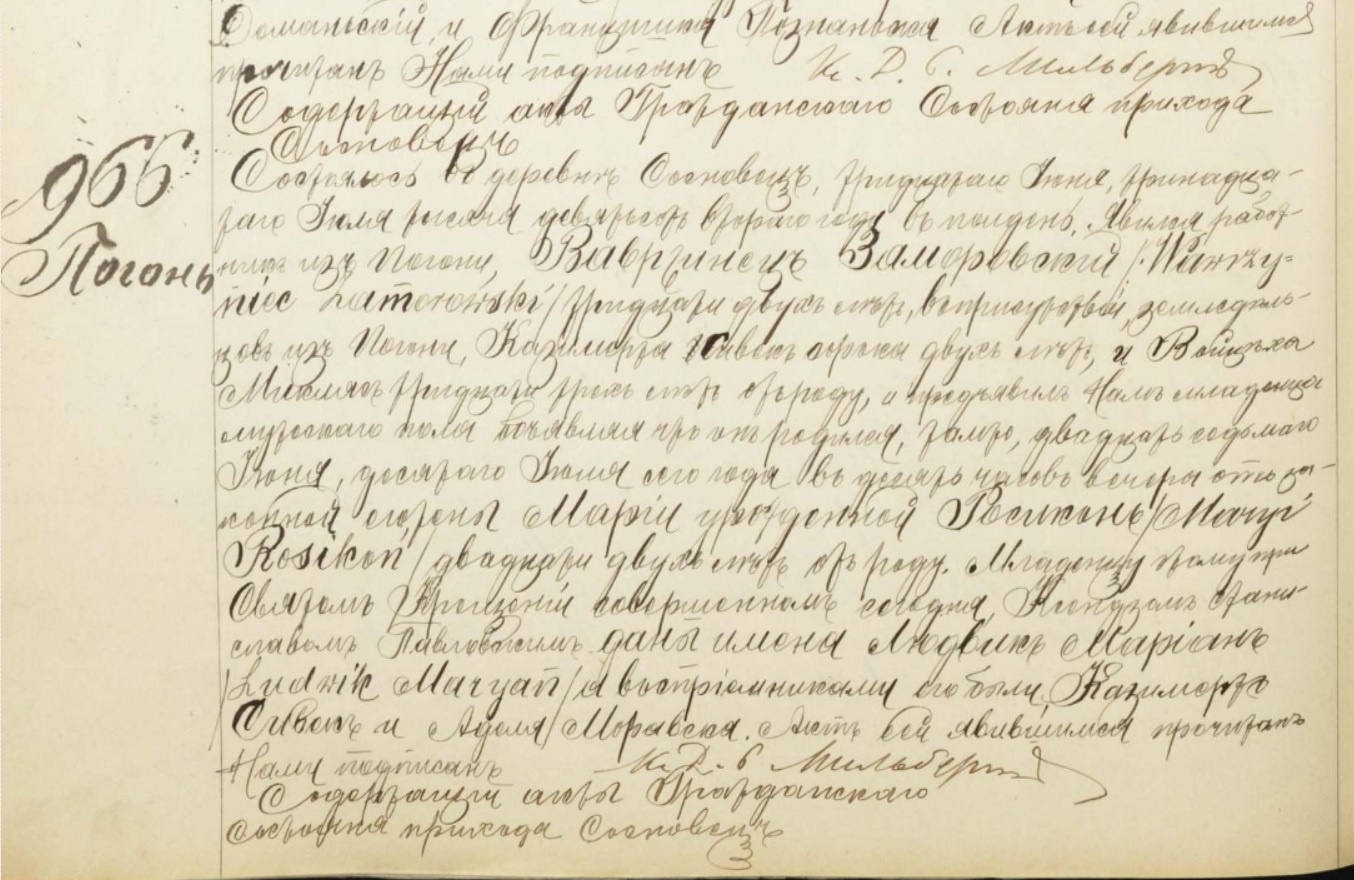 Доманьскій, и Францишка Познаньска Актъ сей явившимся
прочитанъ Нами подписанъ К. Д. Б. Мильбергъ
Содержащій акты Гражданскаго Состоянія прихода
Сосновецъ
966
Погонь
Состоялось въ деревнѣ Сосновецъ, тридцатаго Іюня, тринадца-
таго Іюля тысяча девятьсотъ второго года въ полдень. Явился работ-
никъ изъ Погони, Вавржинецъ Заморовскій /Wawrzy-
niec Zamorowski/ тридцати двухъ лѣтъ, въ присутствіи, земледѣль-
цовъ изъ Погони, Казимержа Сивекъ сорока двухъ лѣтъ, и Войцѣха
тридцати трехъ лѣтъ отъ роду, и предъявилъ Намъ младенца
мужескаго пола объявляя что онъ родился, тамже, двадцать седьмаго
Іюня, десятаго Іюля сего года въ десять часовъ вечера отъ за-
конной его жены Маріи урожденной Росиконь /Maryi
Rosikoń/ двадцати двухъ лѣтъ отъ роду. Младенцу этому при
Святомъ Крещеніи совершенномъ сегодня, Ксендзомъ Стани-
славомъ Павловскимъ даны имена Людвикъ Маріанъ
/Ludwik Maryan/ а воспріемниками его были, Казимержъ
Сивекъ и Аделя Моравска. Актъ сей явившимся прочитанъ
Нами подписанъ К. Д. Б. Мильбергъ
Содержащій акты Гражданскаго
Состоянія прихода Сосновецъ